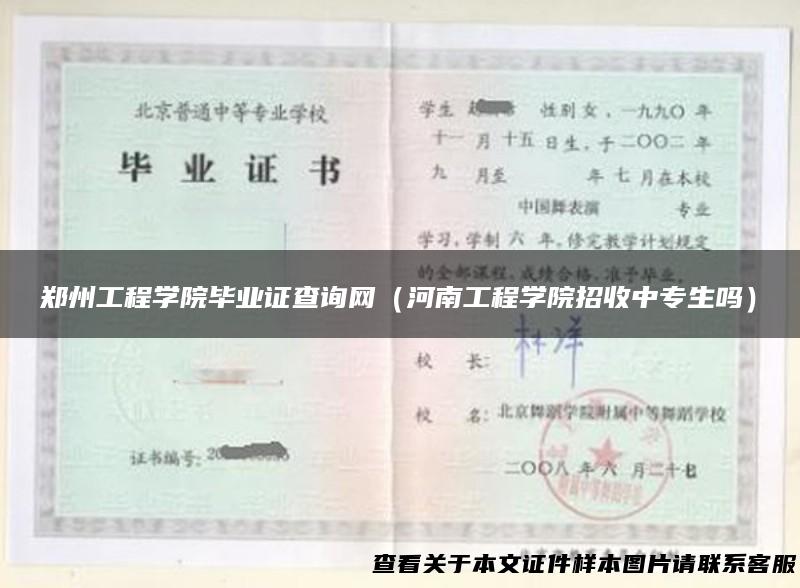 北京普通中等专业学校
毕业证书
证书编号:
学生 性别 女，一九九〇 年
十一 月 十五 日生，于 二〇〇二 年
九 月至 年 七 月在本校
中国舞表演 专业
学习，学制 六 年。修完教学计划规定
的全部课程，成绩合格，准予毕业。
郑州工程学院毕业证查询网（河南工程学院招收中专生吗）
校 长:
校 名: 北京舞蹈学院附属中等舞蹈学校
二〇〇八 年 六 月二十七日
查看关于本文证件样本图片请联系客服